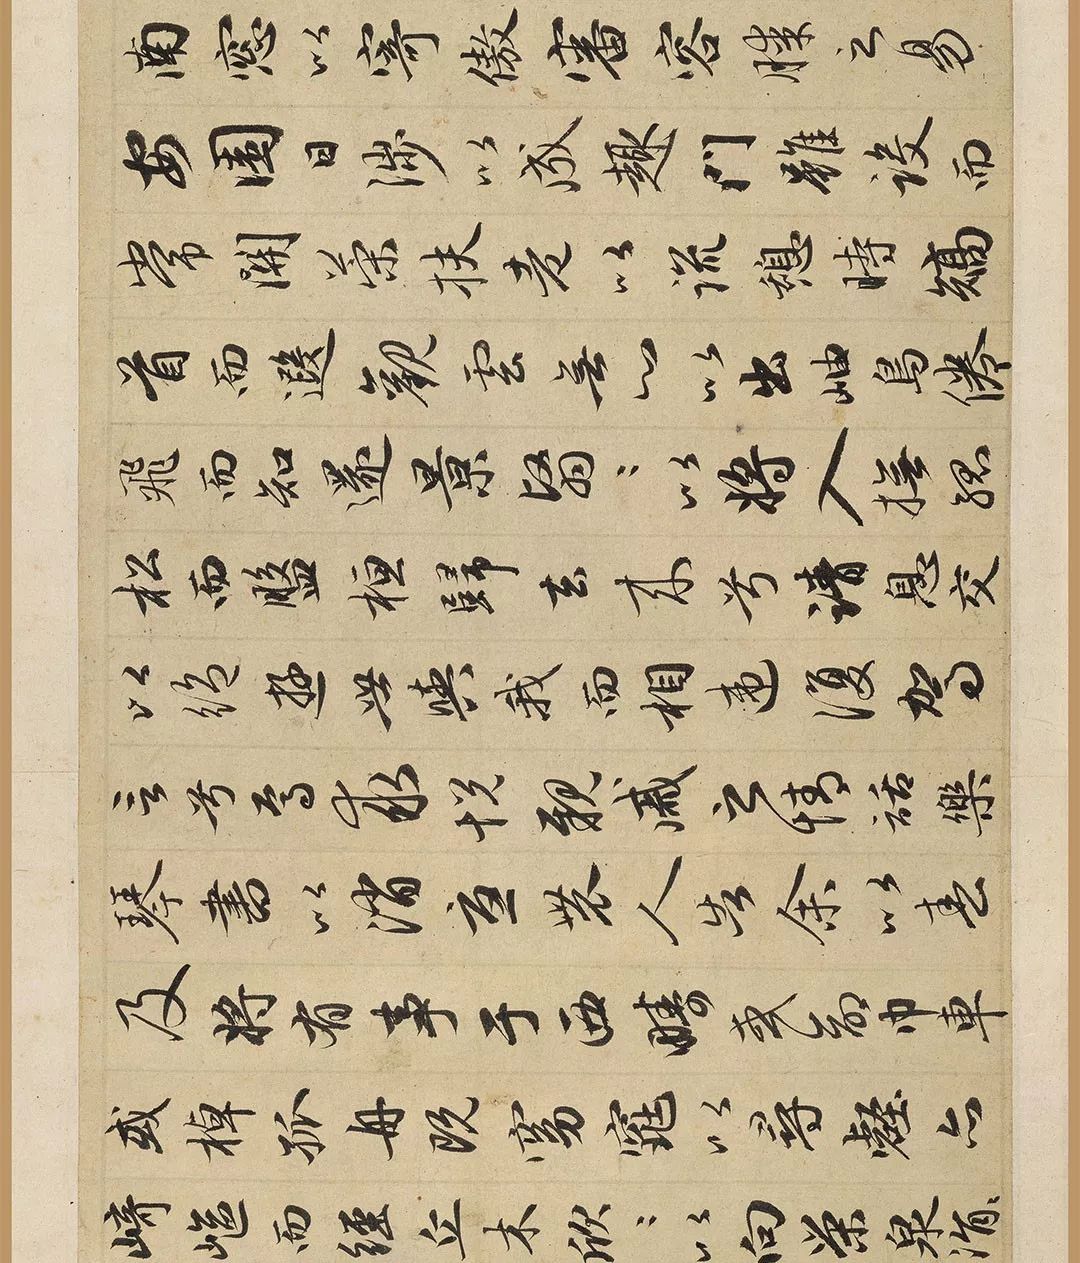 南窓以寄傲審容膝之易
安園日涉以成趣門雖設而
常關策扶老以流憩時矯
首而遐觀雲無心以出岫鳥倦
飛而知還景翳〻以將入撫孤
松而盤桓歸去來兮請息交
以絶遊世與我而相違復駕
言兮焉求悅親戚之情話樂
琴書以消憂農人告余以春
及將有事于西疇或命巾車
或棹孤舟既窈窕以尋壑亦
崎嶇而經丘木欣〻以向榮泉涓〻